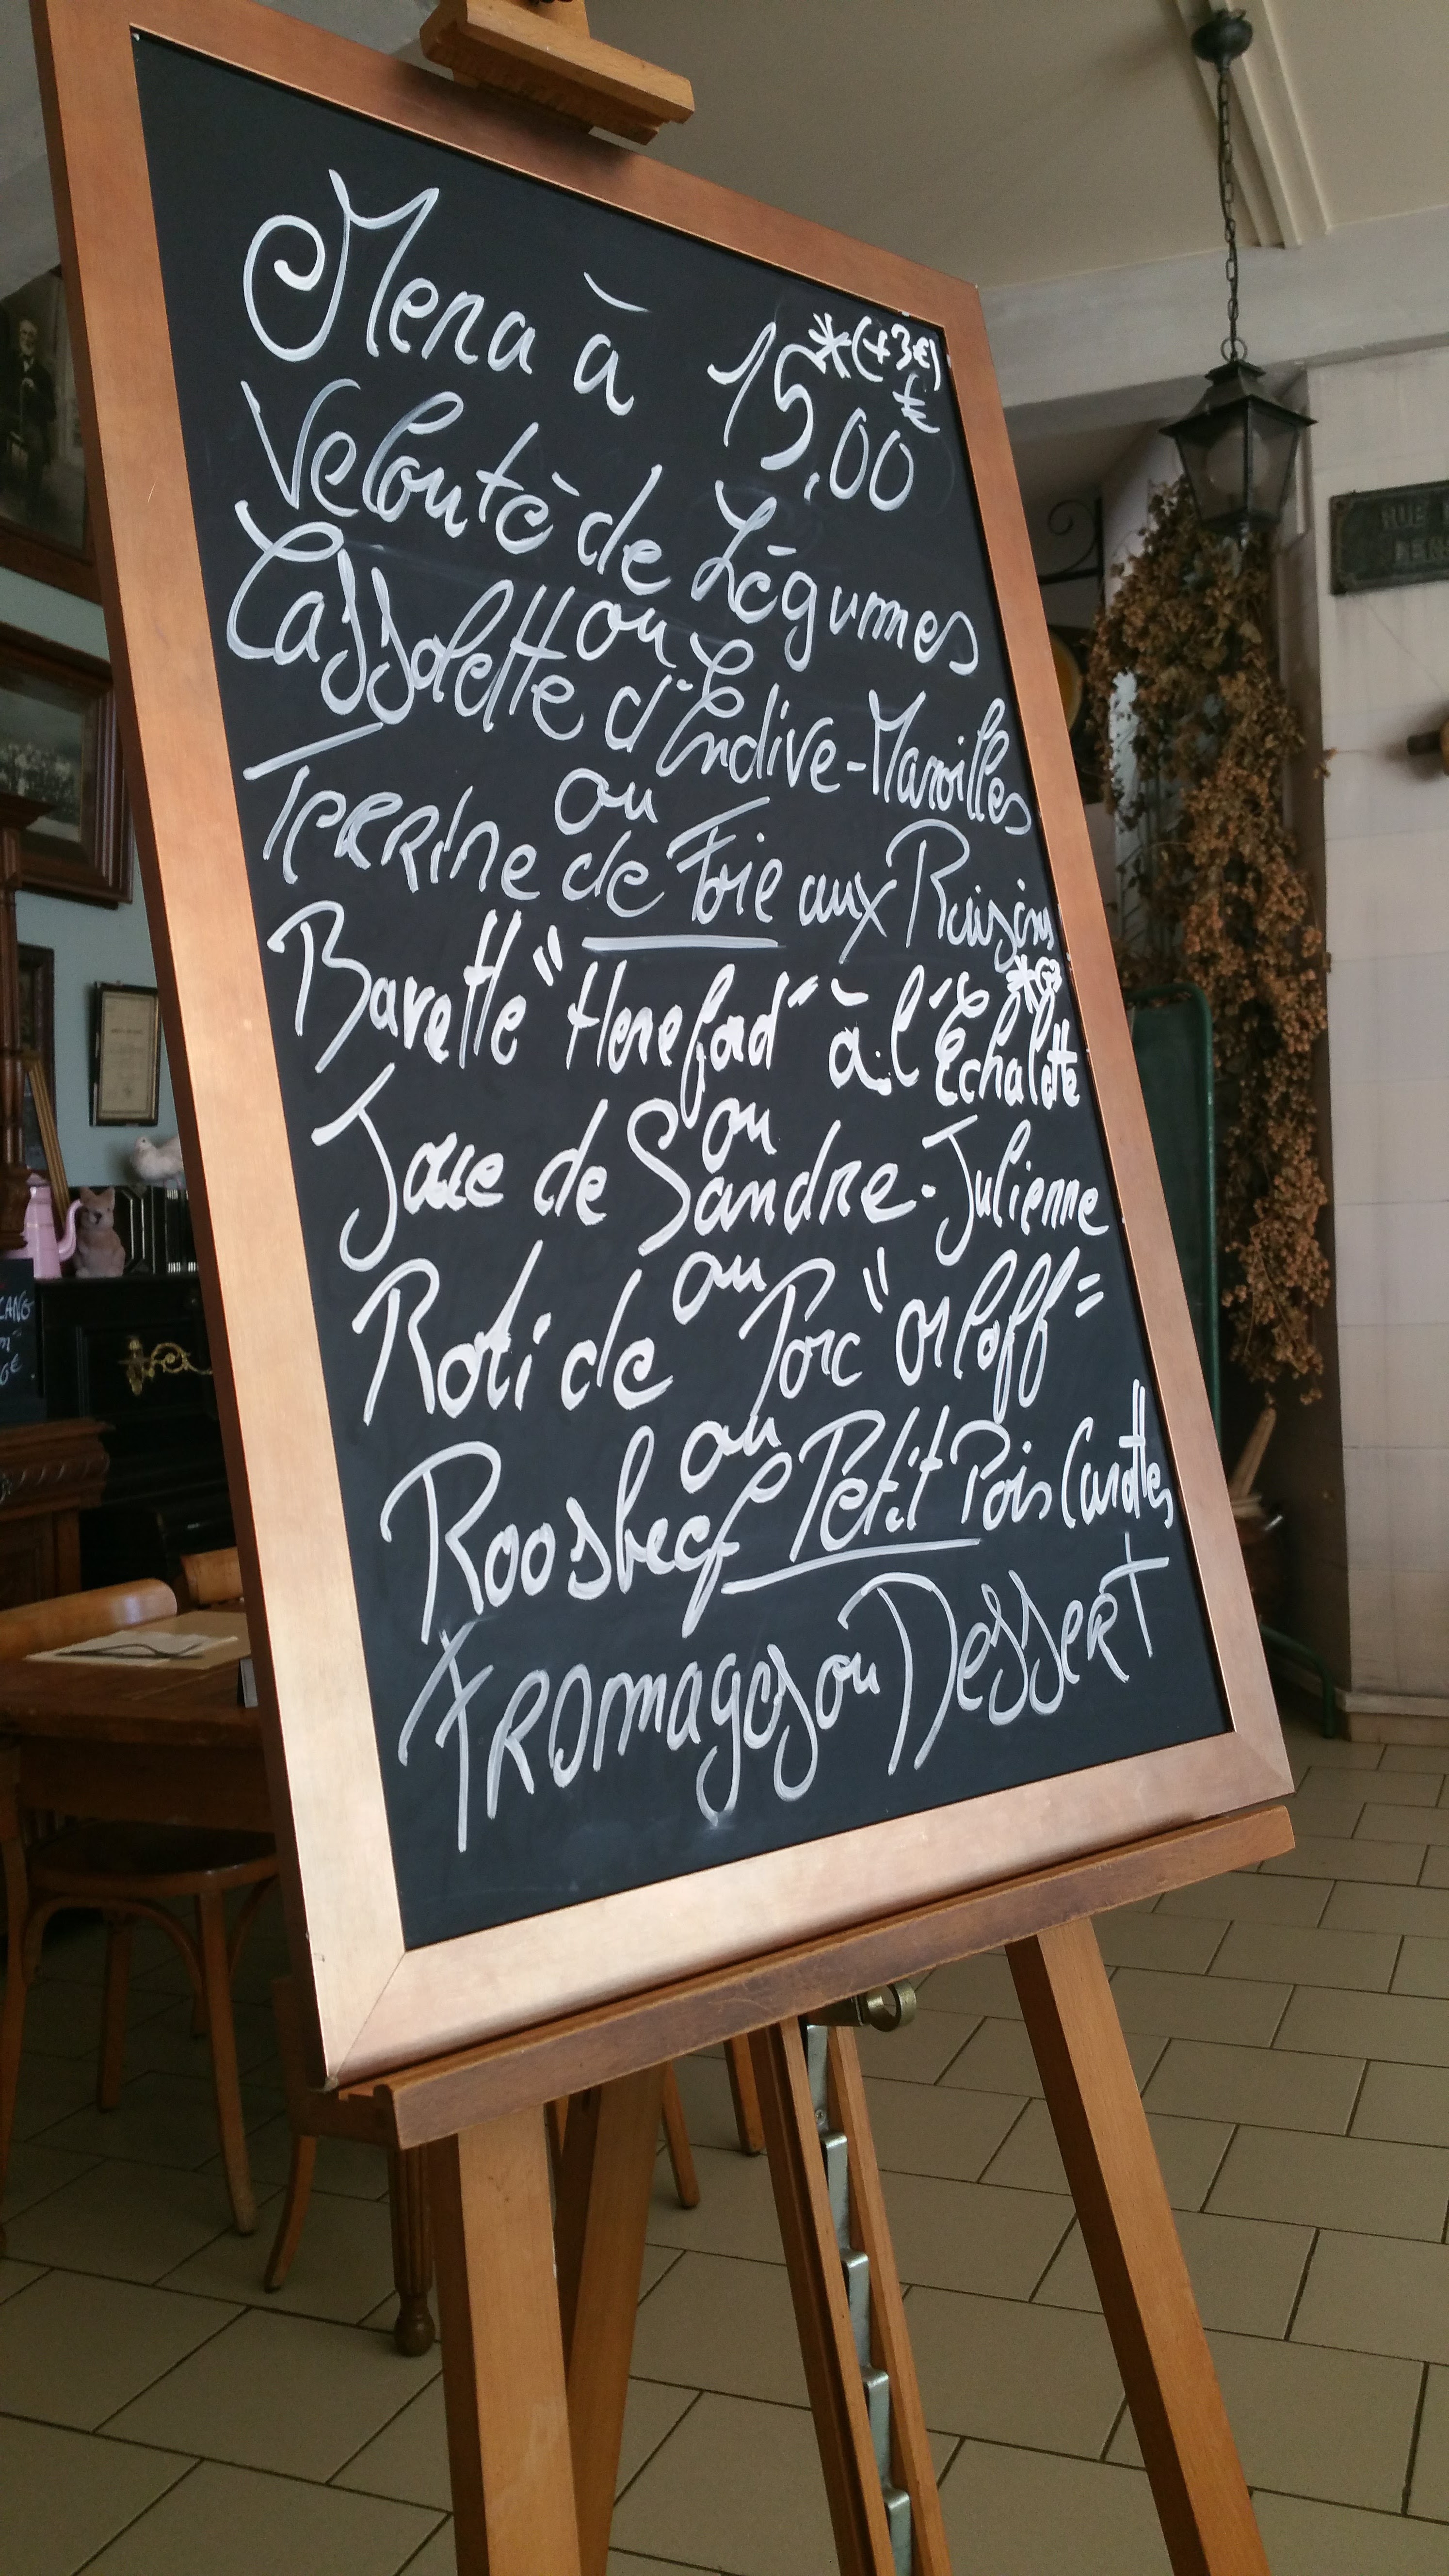 Menu à 15,00 € *(+3€)
Velouté de Légumes
ou
Cassolette d'Endive-Maroilles
ou
Terrine de Foie aux Raisins
Bavette "Hereford" à l'Échalotte *
ou
Joue de Sandre-Julienne
ou
Roti de Porc "Orloff"
ou
Roosbeef Petit Pois Carottes
Fromages ou Dessert
RUE